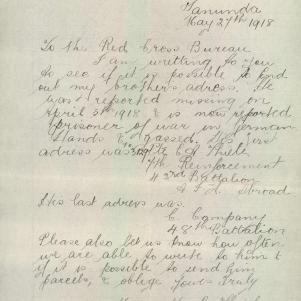 Tanunda
May 27th 1918
To the Red Cross Bureau
I am writting to you
to see if it is possible to find
out my brothers adress. He
was reported missing on
April 5th 1918 & is now reported
prisoner of war in German
Hands & gassed. His first
adress was
7th Reinforcement
43rd Battalion
A.I.F. Abroad
His last adress was.
C. Company
48th Battalion
Please also let us know how often
we are able to write to him &
if it is possible to send him
parcels, & oblige yours truly